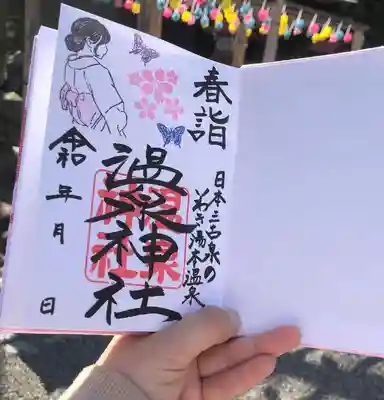 春詣
日本三古泉の
いわき湯本温泉
温泉神社
温泉神社
令和 年 月 日